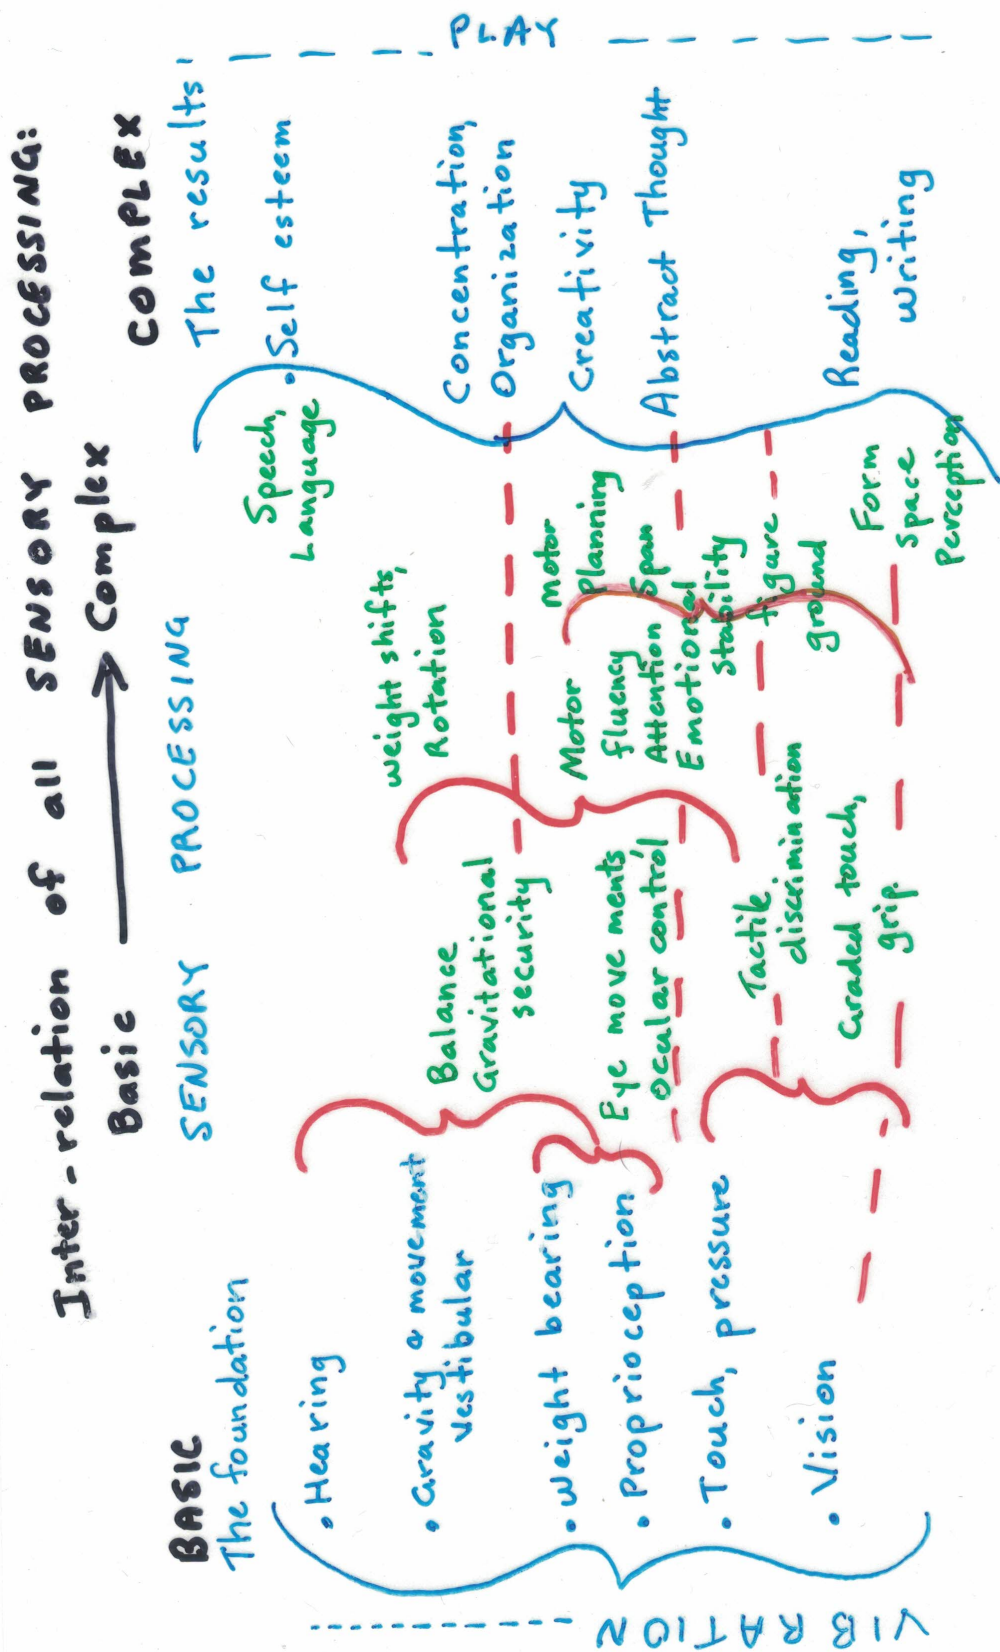 Inter-relation of all SENSORY PROCESSING:
Basic → Complex
BASIC
The foundation
SENSORY PROCESSING
COMPLEX
The results
VIBRATION
• Hearing
• Gravity & movement
vestibular
• Weight bearing
• Proprioception
• Touch, pressure
• Vision
Balance
Gravitational
security
Eye movements
ocular control
Tactile
discrimination
Graded touch,
grip
Weight shifts,
Rotation
Motor
fluency
Attention Span
Emotional
Stability
Speech,
Language
Motor
Planning
figure
ground
Form
space
Perception
• Self esteem
Concentration,
Organization
Creativity
Abstract Thought
Reading,
Writing
PLAY